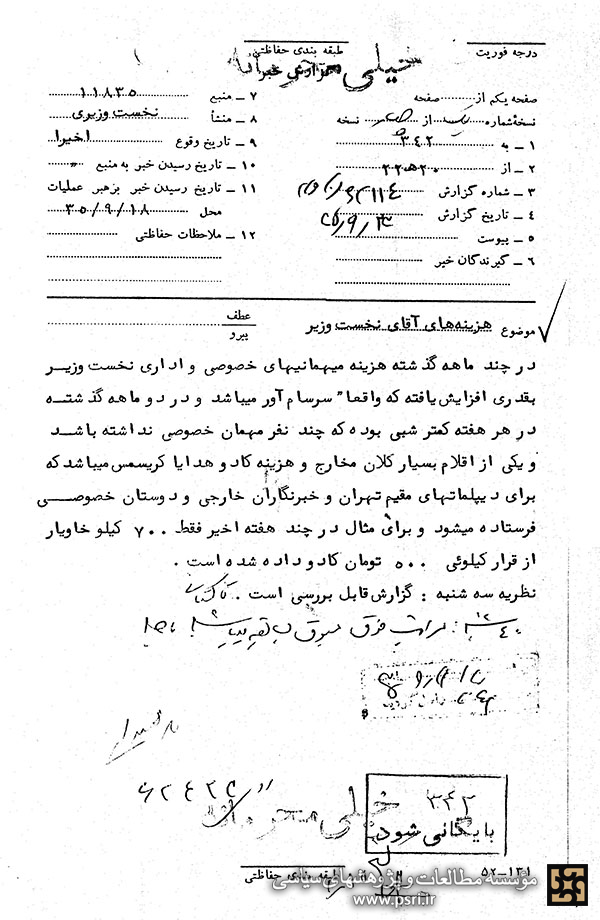 درجه فوریت
طبقه بندی حفاظتی
خیلی محرمانه
گزارش خبر
صفحه یکم از صفحه
نسخه شماره یک از نسخه
۱ ــ به ۳۴۲
۲ ــ از ۲۲۵۲۰
۳ ــ شماره گزارش
۴ ــ تاریخ گزارش
۵ ــ پیوست
۶ ــ گیرندگان خبر
۷ ــ منبع ۱۱۸۳۵
۸ ــ منشأ نخست وزیری
۹ ــ تاریخ وقوع اخیرا
۱۰ ــ تاریخ رسیدن خبر به منبع "
۱۱ ــ تاریخ رسیدن خبر بزهبر عملیات
محل ۳۵/۹/۱۸
۱۲ ــ ملاحظات حفاظتی
موضوع هزینه‌های آقای نخست وزیر
عطف
پیرو
در چند ماهه گذشته هزینه میهمانیهای خصوصی و اداری نخست وزیر
بقدری افزایش یافته که واقعا" سرسام آور میباشد و در دو ماهه گذشته
در هر هفته کمتر شبی بوده که چند نفر مهمان خصوصی نداشته باشد
و یکی از اقلام بسیار کلان مخارج و هزینه کادو و هدایا کریسمس میباشد که
برای دیپلماتهای مقیم تهران و خبرنگاران خارجی و دوستان خصوصی
فرستاده میشود و برای مثال در چند هفته اخیر فقط ۷۰۰ کیلو خاویار
از قرار کیلوئی ۵۰۰ تومان کادو داده شده است .
نظریه سه شنبه : گزارش قابل بررسی است .
خیلی محرمانه
۳۴۲
بایگانی شود
طبقه بندی حفاظتی
۵۲–۱۳۱
مؤسسه مطالعات و پژوهشهای سیاسی
www.psri.ir